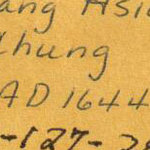 ang Hsi
Chung
AD 1644
-127-28